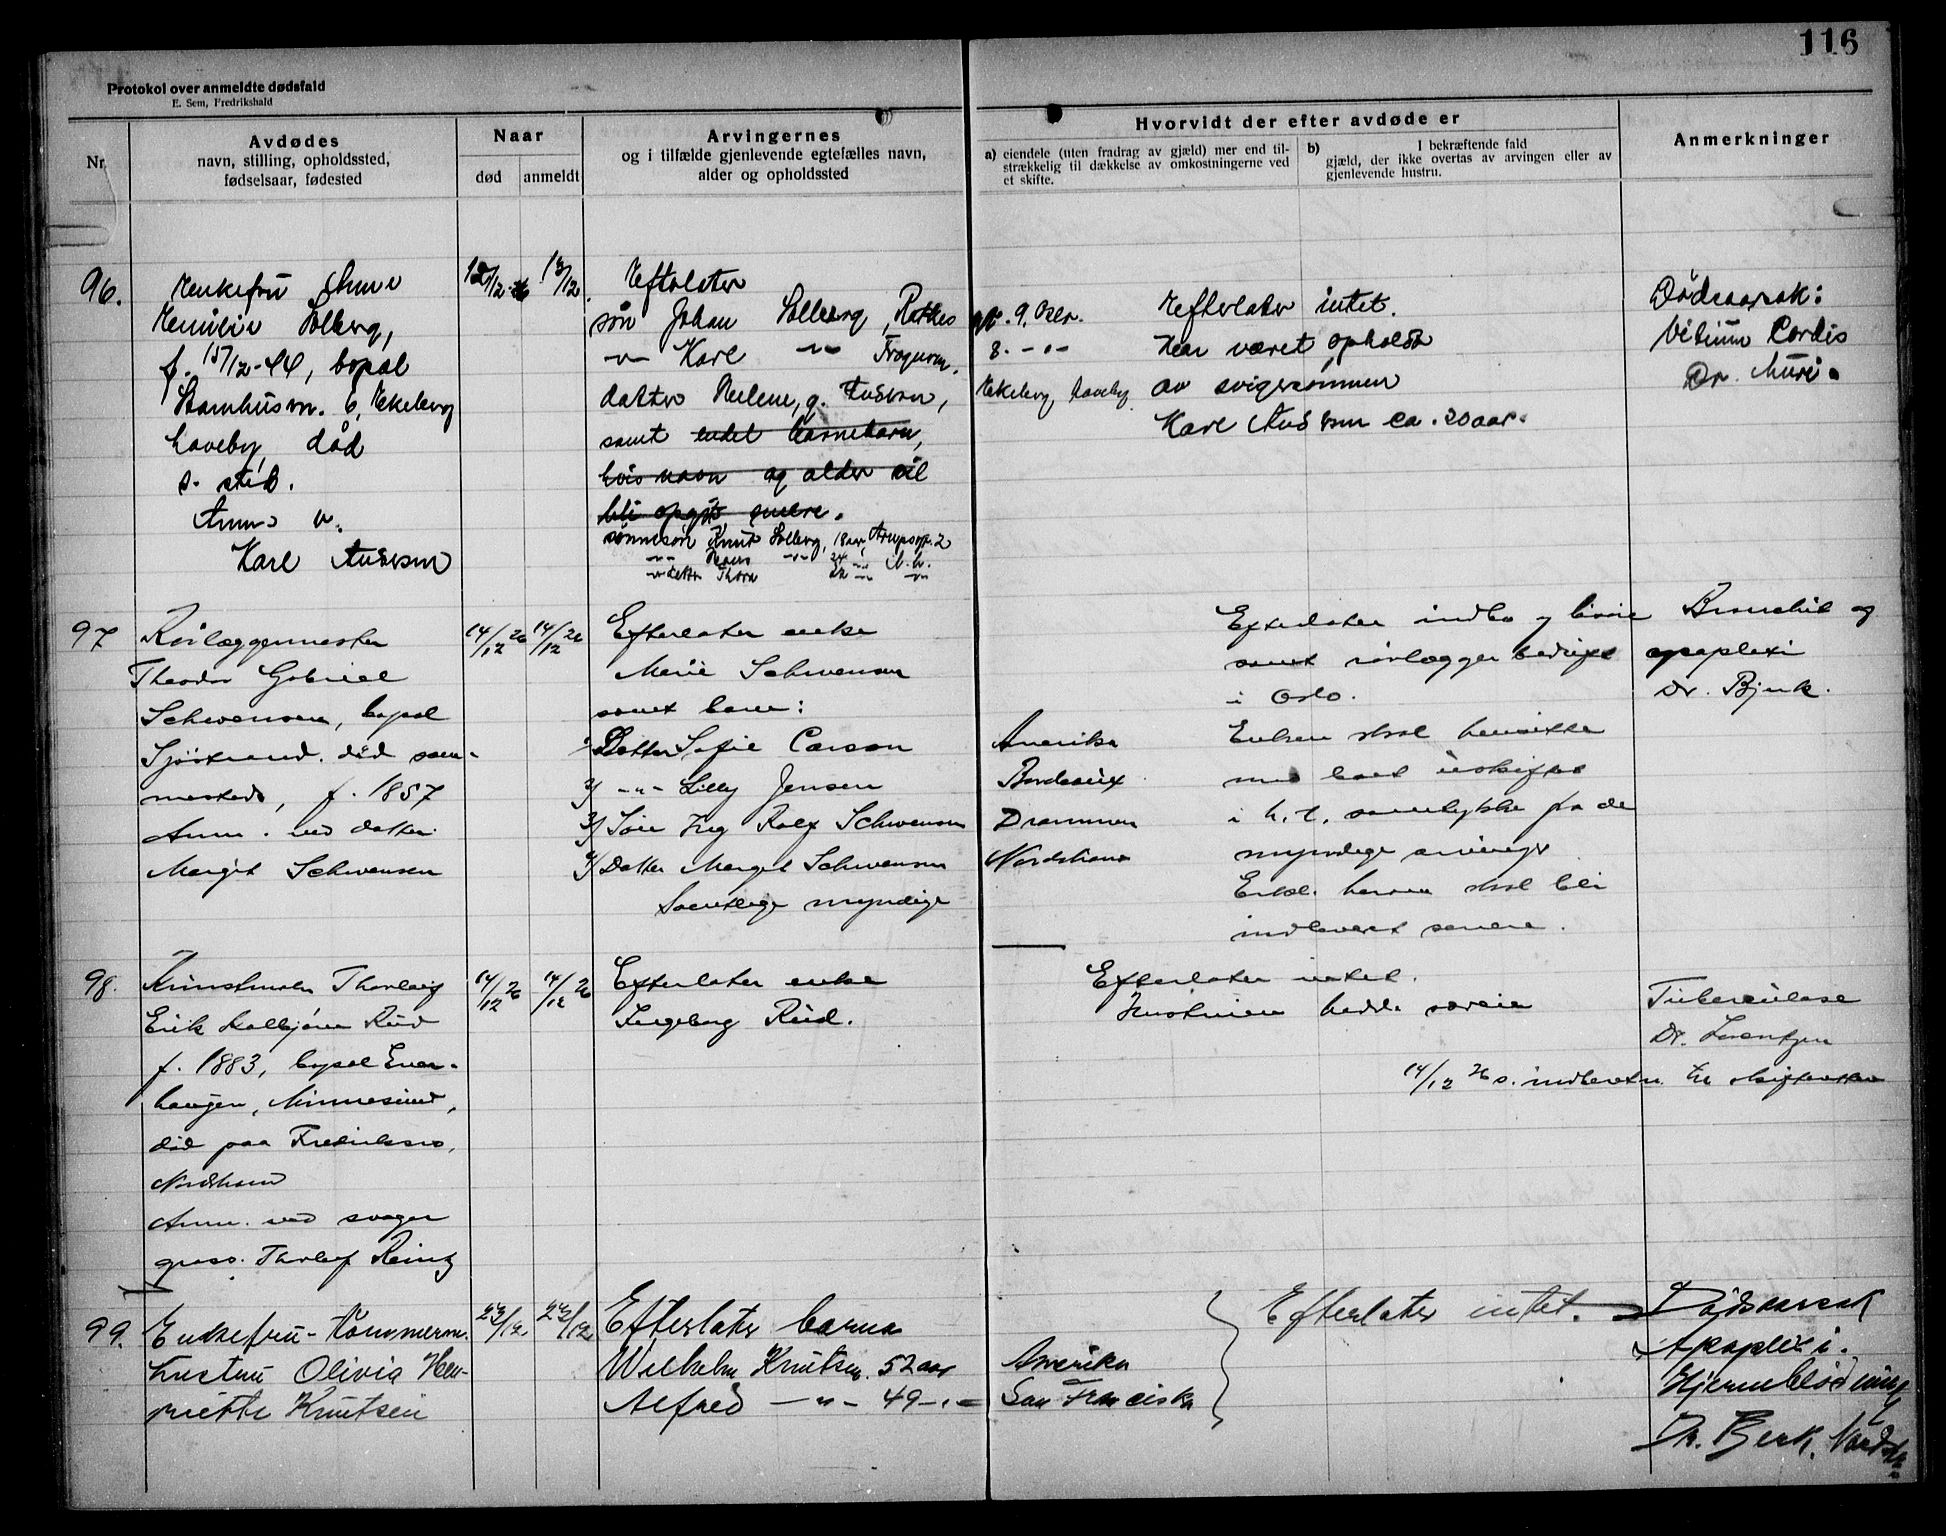 116
Protokol over anmeldte dødsfald
E. Sem, Fredrikshald
Nr.
Avdødes
navn, stilling, opholdssted,
fødselsaar, fødested
Naar
død
anmeldt
Arvingernes
og i tilfælde gjenlevende egtefælles navn,
alder og opholdssted
Hvorvidt der efter avdøde er
a) eiendele (uten fradrag av gjæld) mer end til-
strækkelig til dækkelse av omkostningerne ved
et skifte.
b) I bekræftende fald
gjæld, der ikke overtas av arvingen eller av
gjenlevende hustru.
Anmerkninger
96.
Enkefru
Solberg,
f. 15/12-44, bopæl
6, Ekeberg
haveby, død
s. sted.
Anm. v.
Karl
12/12-26
13/12
Efterlater
søn Johan Solberg,
9. Oslo.
-"- Karl -"-
8. -"-
datter Helene, g.
Ekeberg haveby
samt endel barnebarn,
hvis navn og alder vil
bli opgit senere.
sønnesøn Knut Solberg, 18 aar, 2
24
datter Thora 22
Efterlater intet.
Har været opholdt
av svigersønnen
Karl ca. 20 aar.
Dødsaarsak:
Vitium Cordis
Dr.
97
Rørlæggermester
Theodor Gabriel
Schwensen, bopæl
Sjøstrand. død sam-
mesteds, f. 1857
Anm. ved datter
Margit Schwensen
14/12 26
14/12 26
Efterlater enke
Marie Schwensen
samt barn:
1/ Datter Sofie Carson
Amerika
2/ -"- Lilly Jensen
Bordeaux
3/ Søn Ing Rolf Schwensen
Drammen
4/ Datter Margit Schwensen
Nordstrand
Samtlige myndige
Efterlater indbo og
samt rørlæggerbedrift
i Oslo.
Enken skal hensitte
med boet uskiftet
i h. t. samtykke fra de
myndige arvinger
Erkl. herom skal bli
indlevert senere.
Bronchit og
apoplexi
Dr. Bjerk.
98.
Kunstmaler Thorleif
Erik Rud
f. 1883, bopæl
haugen, Minnesund,
død paa Fredriksro,
Nordstrand
Anm. ved svoger
gross. Thorleif
14/12 26
14/12 26
Efterlater enke
Ingeborg Rud.
Efterlater intet.
Hustruen hadde særeie
Tuberculose
Dr. Lorentzen
14/12 26 s. indberetn. til skifteretten
99.
Enkefru
Olivia Hen-
riette Knutsen
23/12
24/12
Efterlater barna
Wilhelm Knutsen 52 aar
Amerika
Alfred -"- 49 -"-
San Francisko
Efterlater intet.
Dødsaarsak
Apoplexi.
Hjerneblødning
Dr. Bjerk.